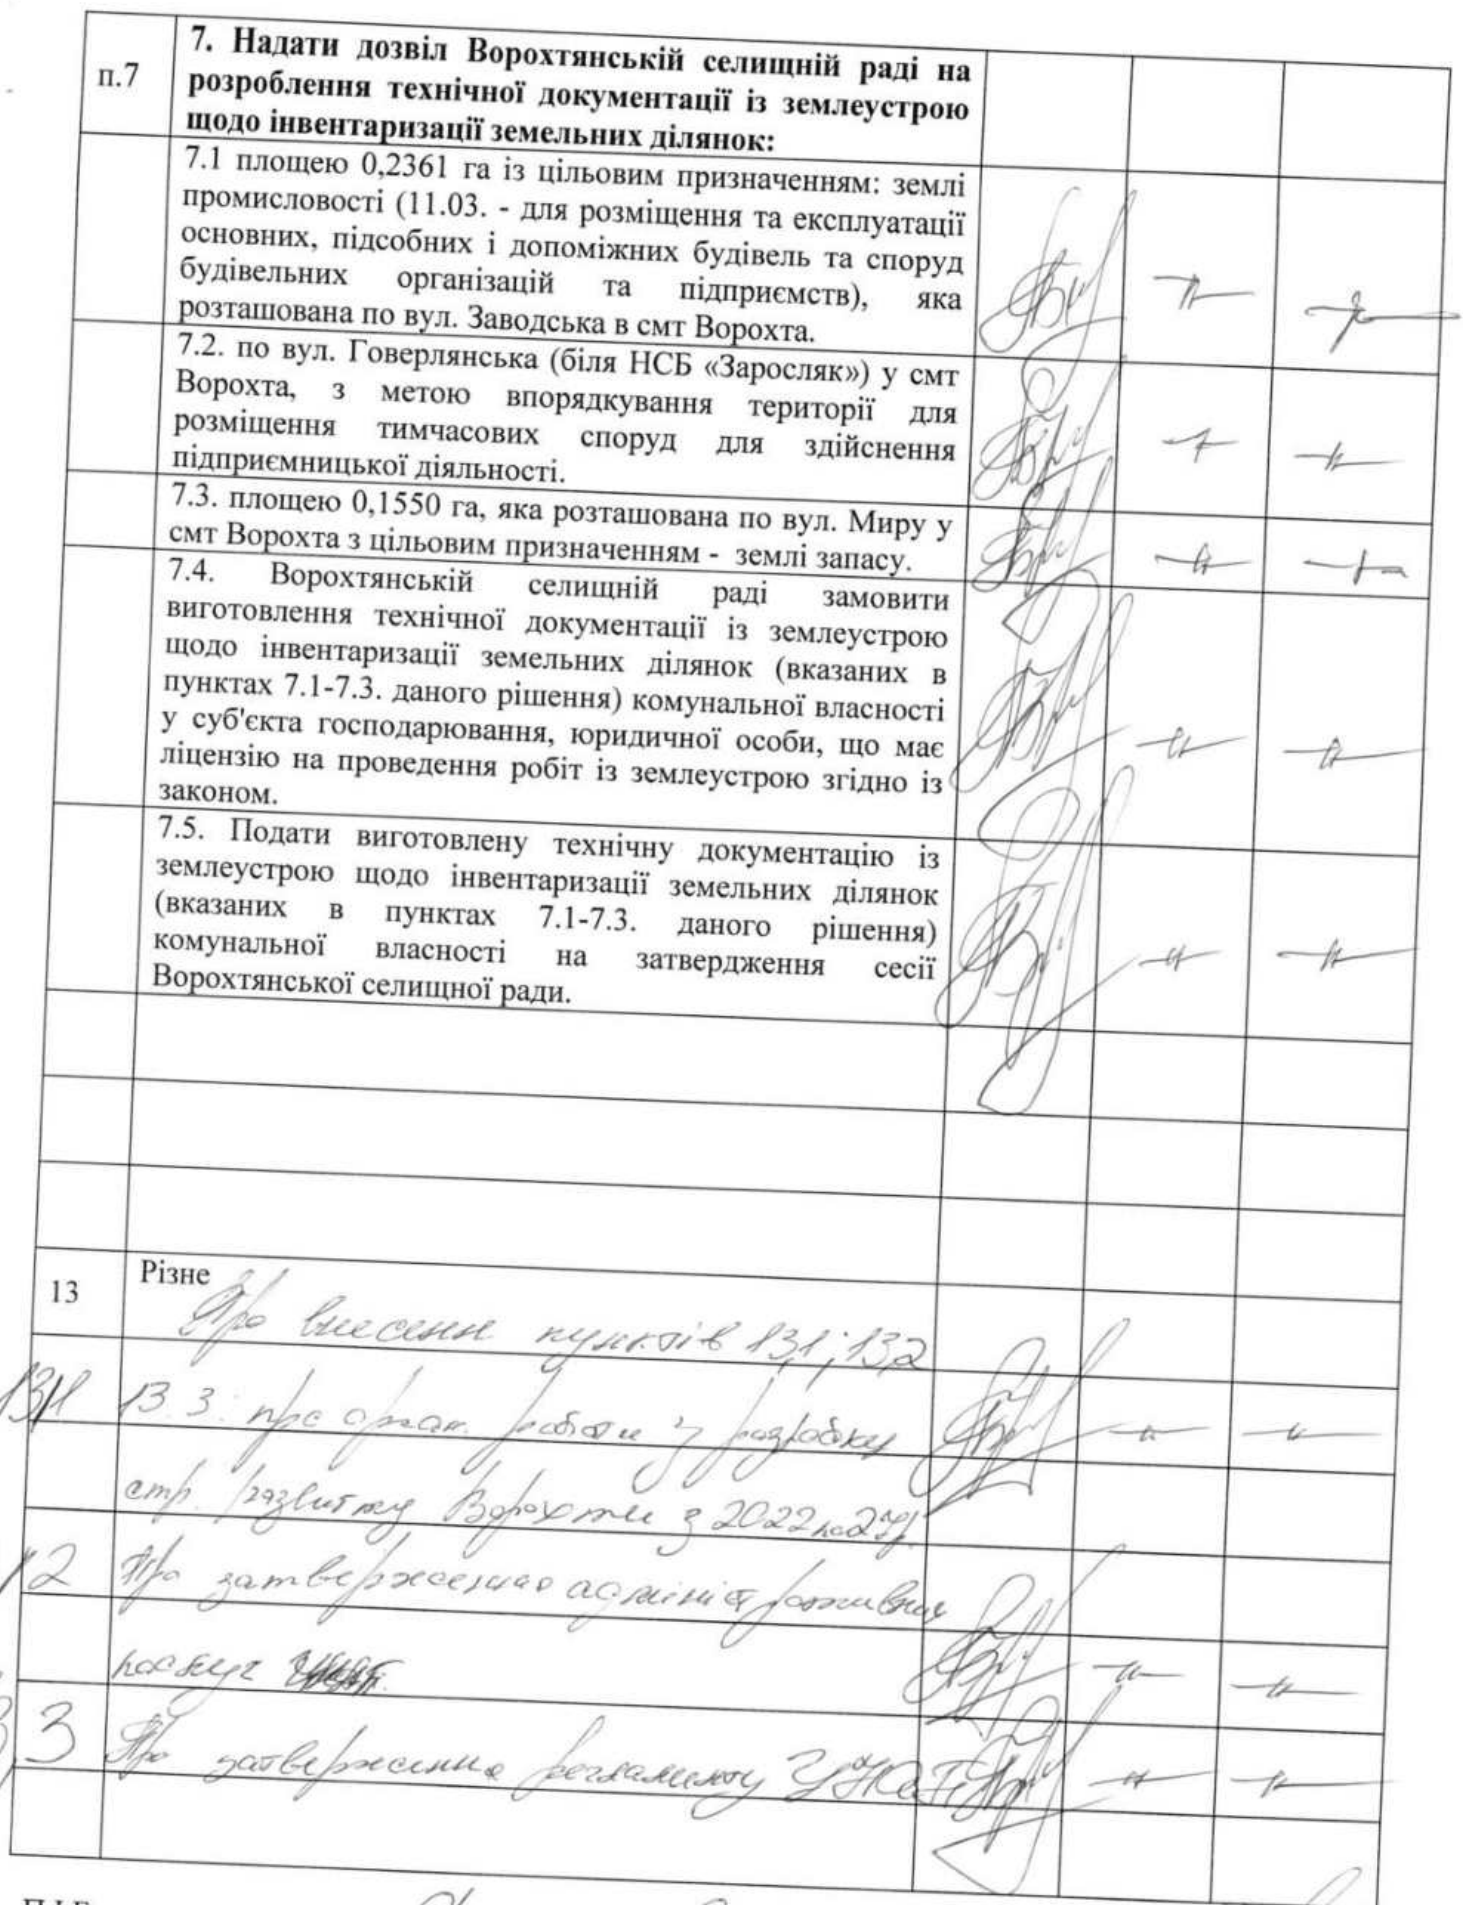 п.7
7. Надати дозвіл Ворохтянській селищній раді на
розроблення технічної документації із землеустрою
щодо інвентаризації земельних ділянок:
7.1 площею 0,2361 га із цільовим призначенням: землі
промисловості (11.03. - для розміщення та експлуатації
основних, підсобних і допоміжних будівель та споруд
будівельних організацій та підприємств), яка
розташована по вул. Заводська в смт Ворохта.
7.2. по вул. Говерлянська (біля НСБ «Заросляк») у смт
Ворохта, з метою впорядкування території для
розміщення тимчасових споруд для здійснення
підприємницької діяльності.
7.3. площею 0,1550 га, яка розташована по вул. Миру у
смт Ворохта з цільовим призначенням - землі запасу.
7.4. Ворохтянській селищній раді замовити
виготовлення технічної документації із землеустрою
щодо інвентаризації земельних ділянок (вказаних в
пунктах 7.1-7.3. даного рішення) комунальної власності
у суб'єкта господарювання, юридичної особи, що має
ліцензію на проведення робіт із землеустрою згідно із
законом.
7.5. Подати виготовлену технічну документацію із
землеустрою щодо інвентаризації земельних ділянок
(вказаних в пунктах 7.1-7.3. даного рішення)
комунальної власності на затвердження сесії
Ворохтянської селищної ради.
13
Різне
Про внесенн пунктів 13,1; 13,2
13.3. про орган. роботи з розробки
стр. розвитку Ворохти з 2022 по 27р.
2
Про затвердження адміністративних
послуг
3
Про затвердження регламенту